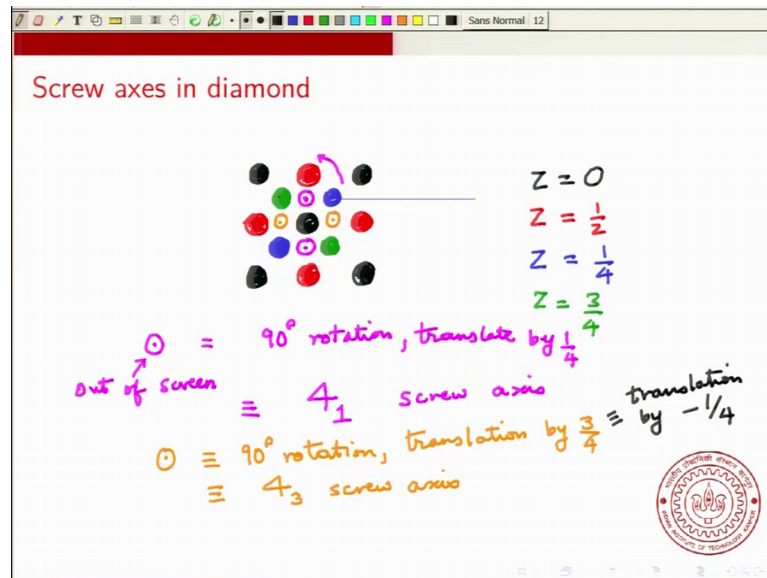 T
Sans Normal 12
Screw axes in diamond
Z = 0
Z = 1/2
Z = 1/4
Z = 3/4
⊙ = 90° rotation, translate by 1/4
Out of screen
≡ 4₁ screw axis
⊙ ≡ 90° rotation, translation by 3/4 ≡ translation by -1/4
≡ 4₃ screw axis
INDIAN INSTITUTE OF TECHNOLOGY KANPUR